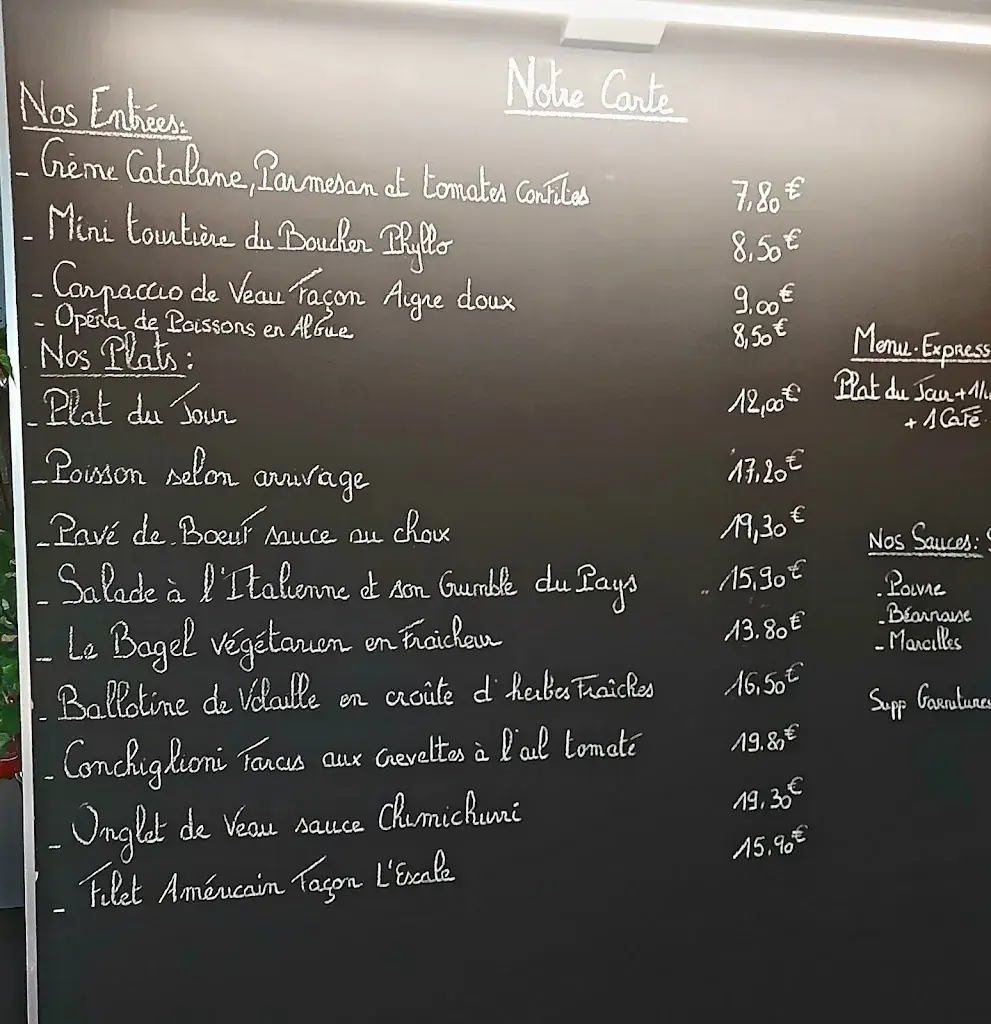 Notre Carte
Nos Entrées:
- Crème Catalane, Parmesan et tomates confites 7,80€
- Mini tourtière du Boucher Phyllo 8,50€
- Carpaccio de Veau façon Aigre doux 9.00€
- Opéra de Poissons en Algue 8,50€
Nos Plats:
- Plat du Jour 12,00€
- Poisson selon arrivage 17,20€
- Pavé de Boeuf sauce au choux 19,30€
- Salade à l'Italienne et son Crumble du Pays 15,90€
- Le Bagel végétarien en fraicheur 13.80€
- Ballotine de Volaille en croûte d'herbes fraîches 16,50€
- Conchiglioni farcis aux crevettes à l'ail tomaté 19.80€
- Onglet de Veau sauce Chimichurri 19,30€
- Filet Américain façon L'Escale 15,90€
Menu Express
Plat du Jour +
+ 1 Café
Nos Sauces:
- Poivre
- Béarnaise
- Marcilles
Supp Garnitures